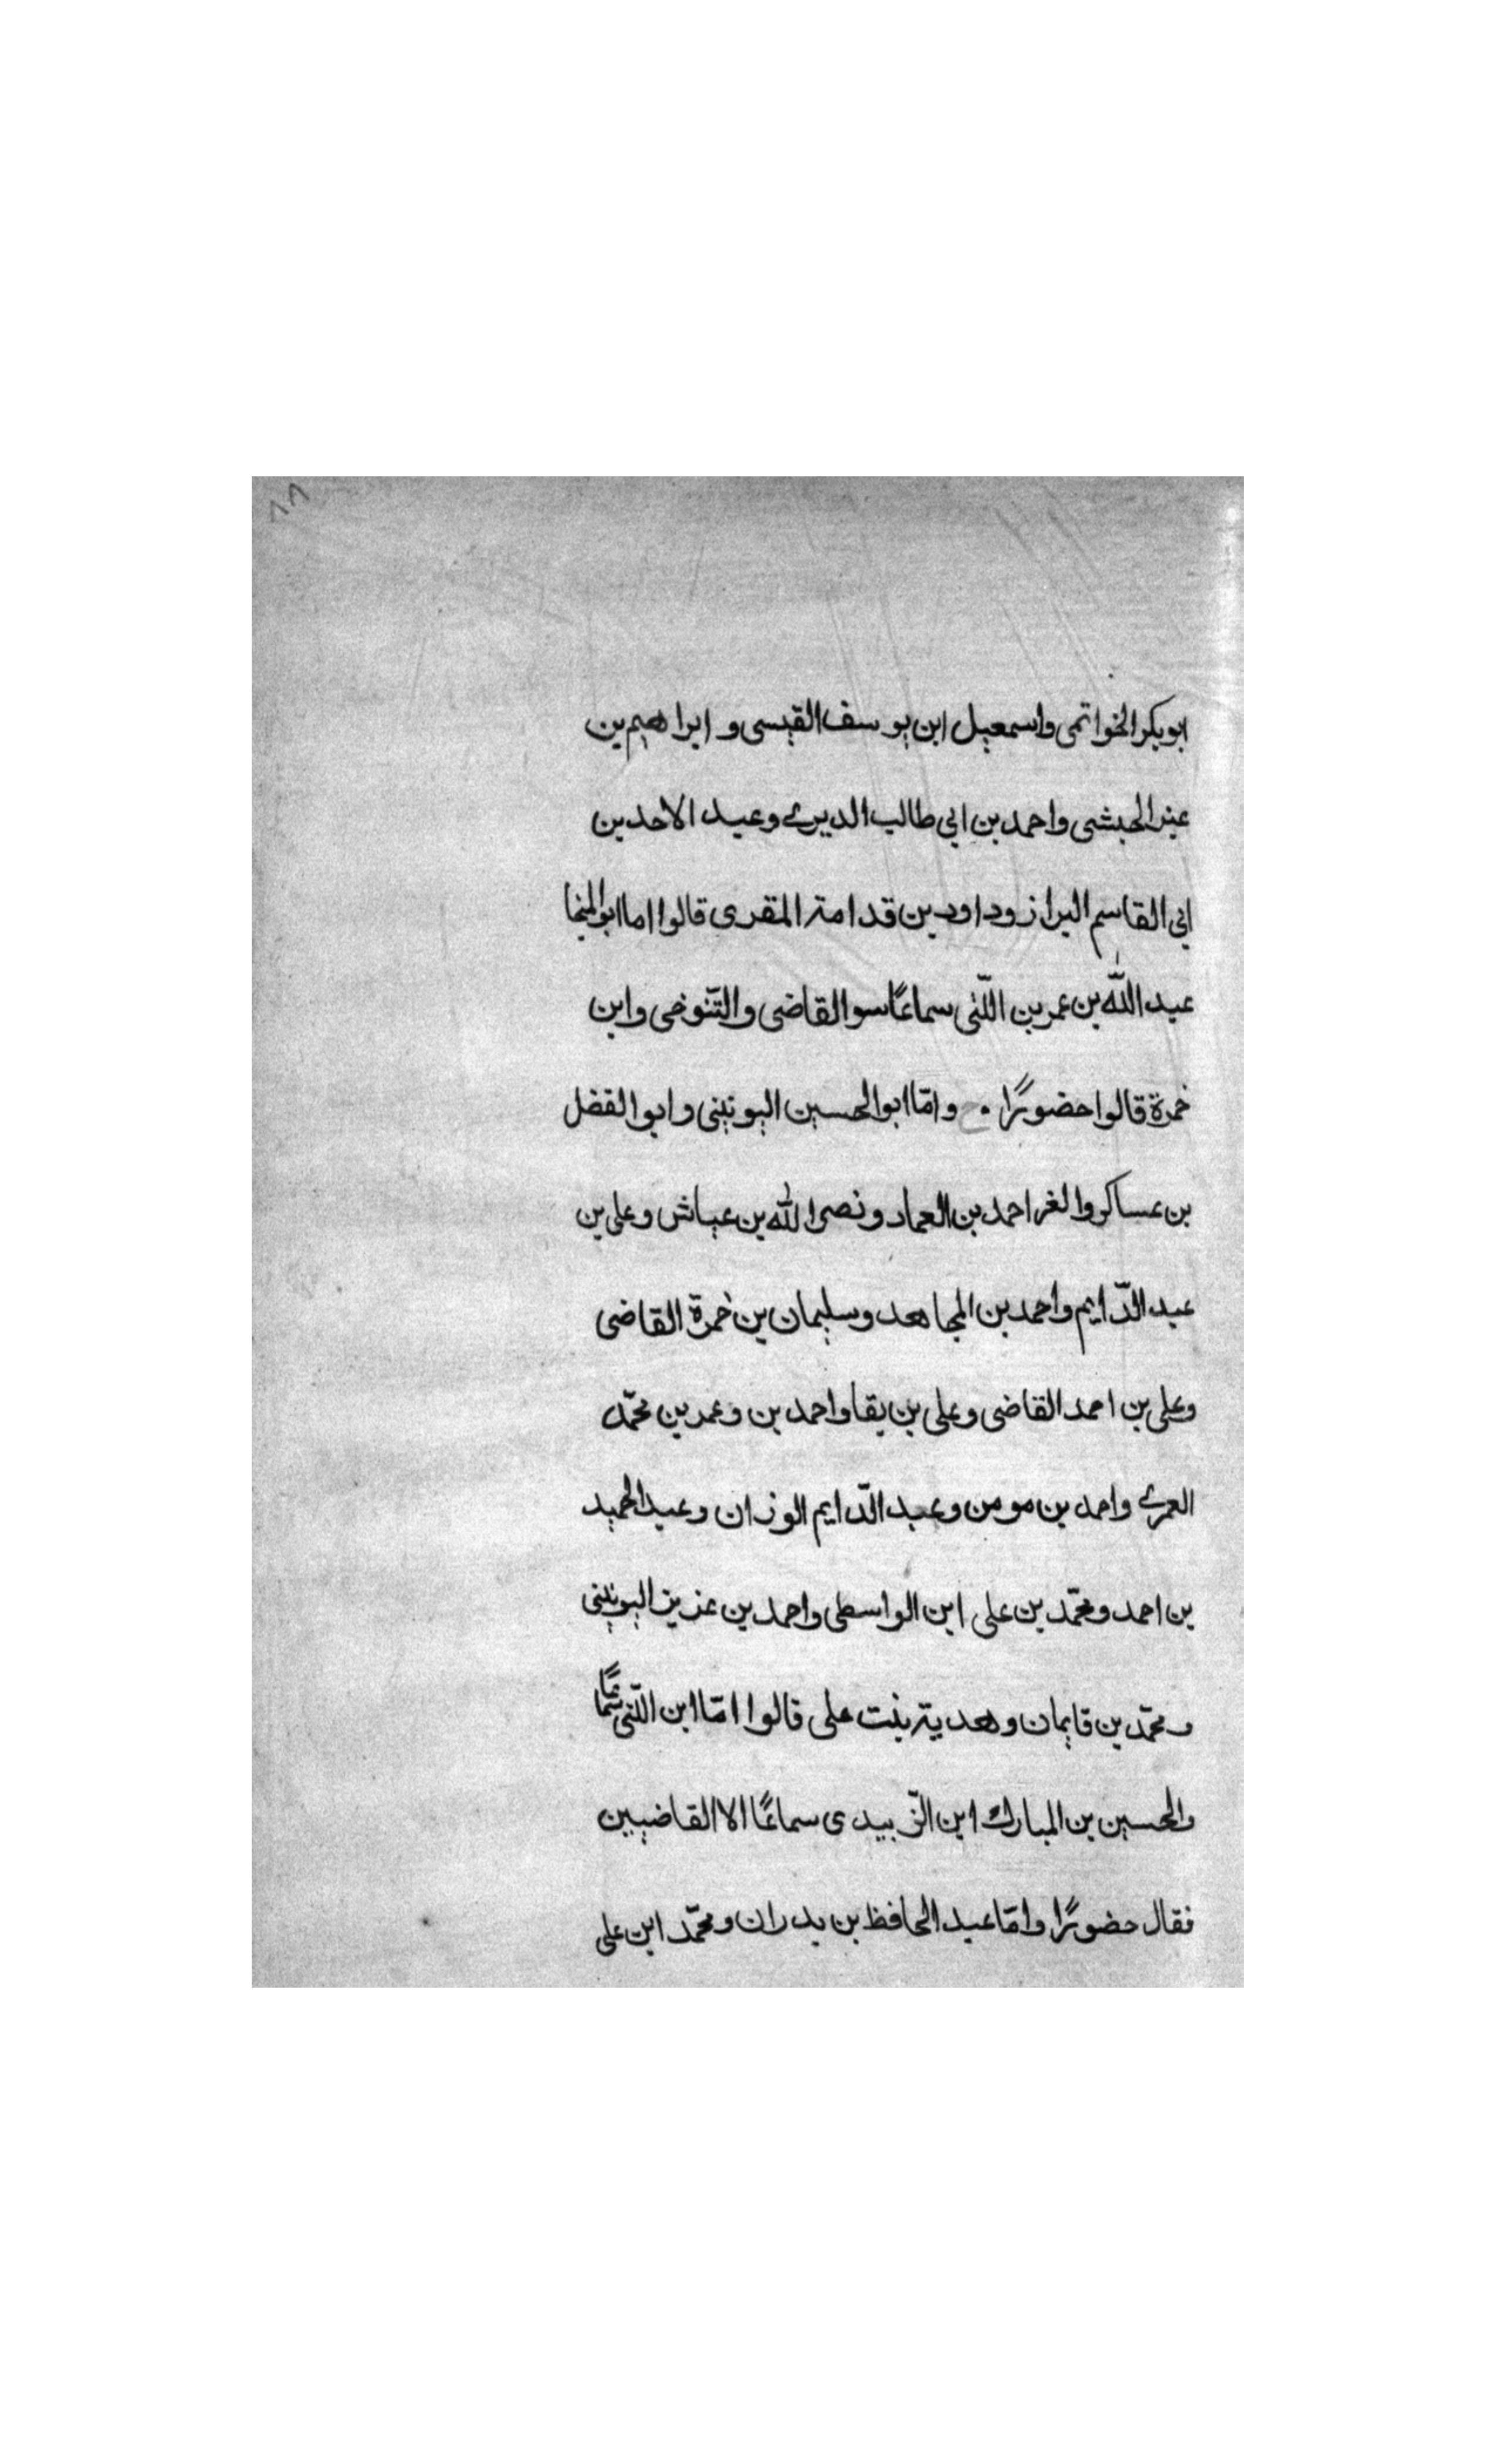 ٨٨
ابو بكر الخواتمى واسمعيل ابن يوسف القيسى و ابراهيم بن
عنبر الحبشى واحمد بن ابي طالب الديرى وعبد الاحد بن
ابي القاسم البراز وداود بن قدامة المقرى قالوا اما ابو المنجا
عبد الله بن عمر بن اللّتى سماعًا سوا القاضى والتّنوخى وابن
خمرة قالوا حضورًا ٠ ح وامّا ابو الحسين اليونينى وابو الفضل
بن عساكر والغر احمد بن العماد ونصر الله بن عياش وعلى بن
عبد الدّايم واحمد بن المجاهد وسليمان بن خمرة القاضى
وعلى بن احمد القاضى وعلى بن بقا واحمد بن وعمر بن محمّد
العمرى واحمد بن مومن وعبد الدّايم الوزان وعبد الحميد
بن احمد ومحمّد بن على ابن الواسطى واحمد بن عزيز اليونينى
ومحمّد بن قايمان وهدية بنت على قالوا امّا ابن اللّتى سماعًا
والحسين بن المبارك ابن الزّبيدى سماعًا الا القاضيين
فقال حضورًا وامّا عبد الحافظ بن بدران ومحمّد ابن على